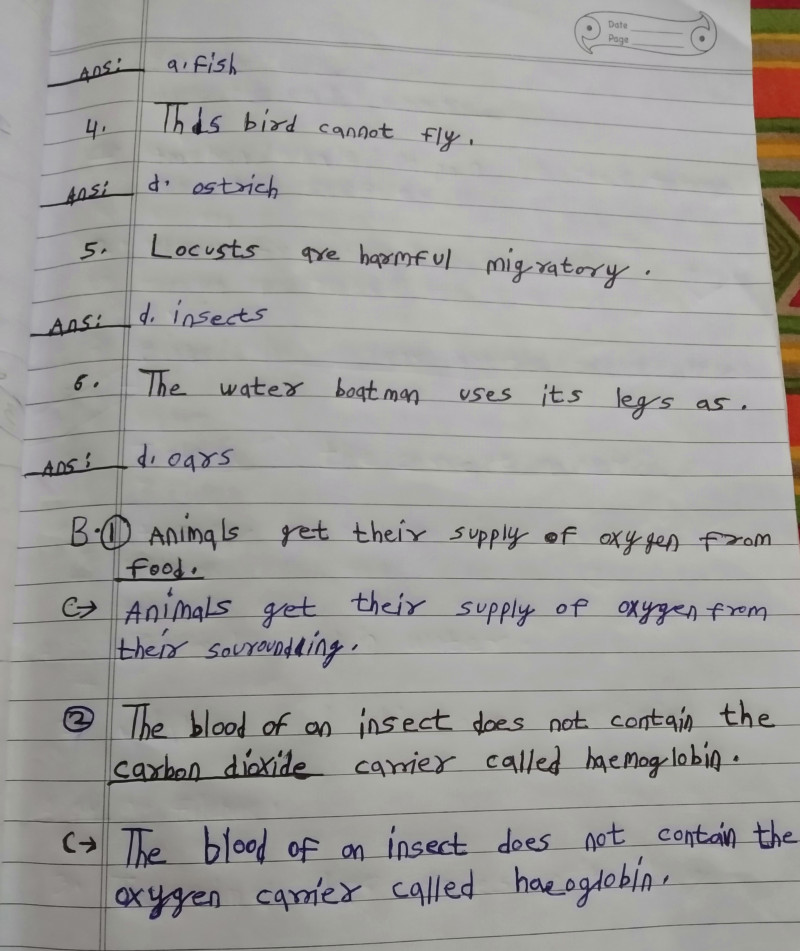 Date
Page
Ans: a. fish
4. This bird cannot fly.
Ans: d. ostrich
5. Locusts are harmful migratory.
Ans: d. insects
6. The water boatman uses its legs as.
Ans: d. oars
B. ① Animals get their supply of oxygen from
food.
C→ Animals get their supply of oxygen from
their sourounding.
② The blood of an insect does not contain the
carbon dioxide carrier called haemoglobin.
C→ The blood of an insect does not contain the
oxygen carrier called haeoglobin.